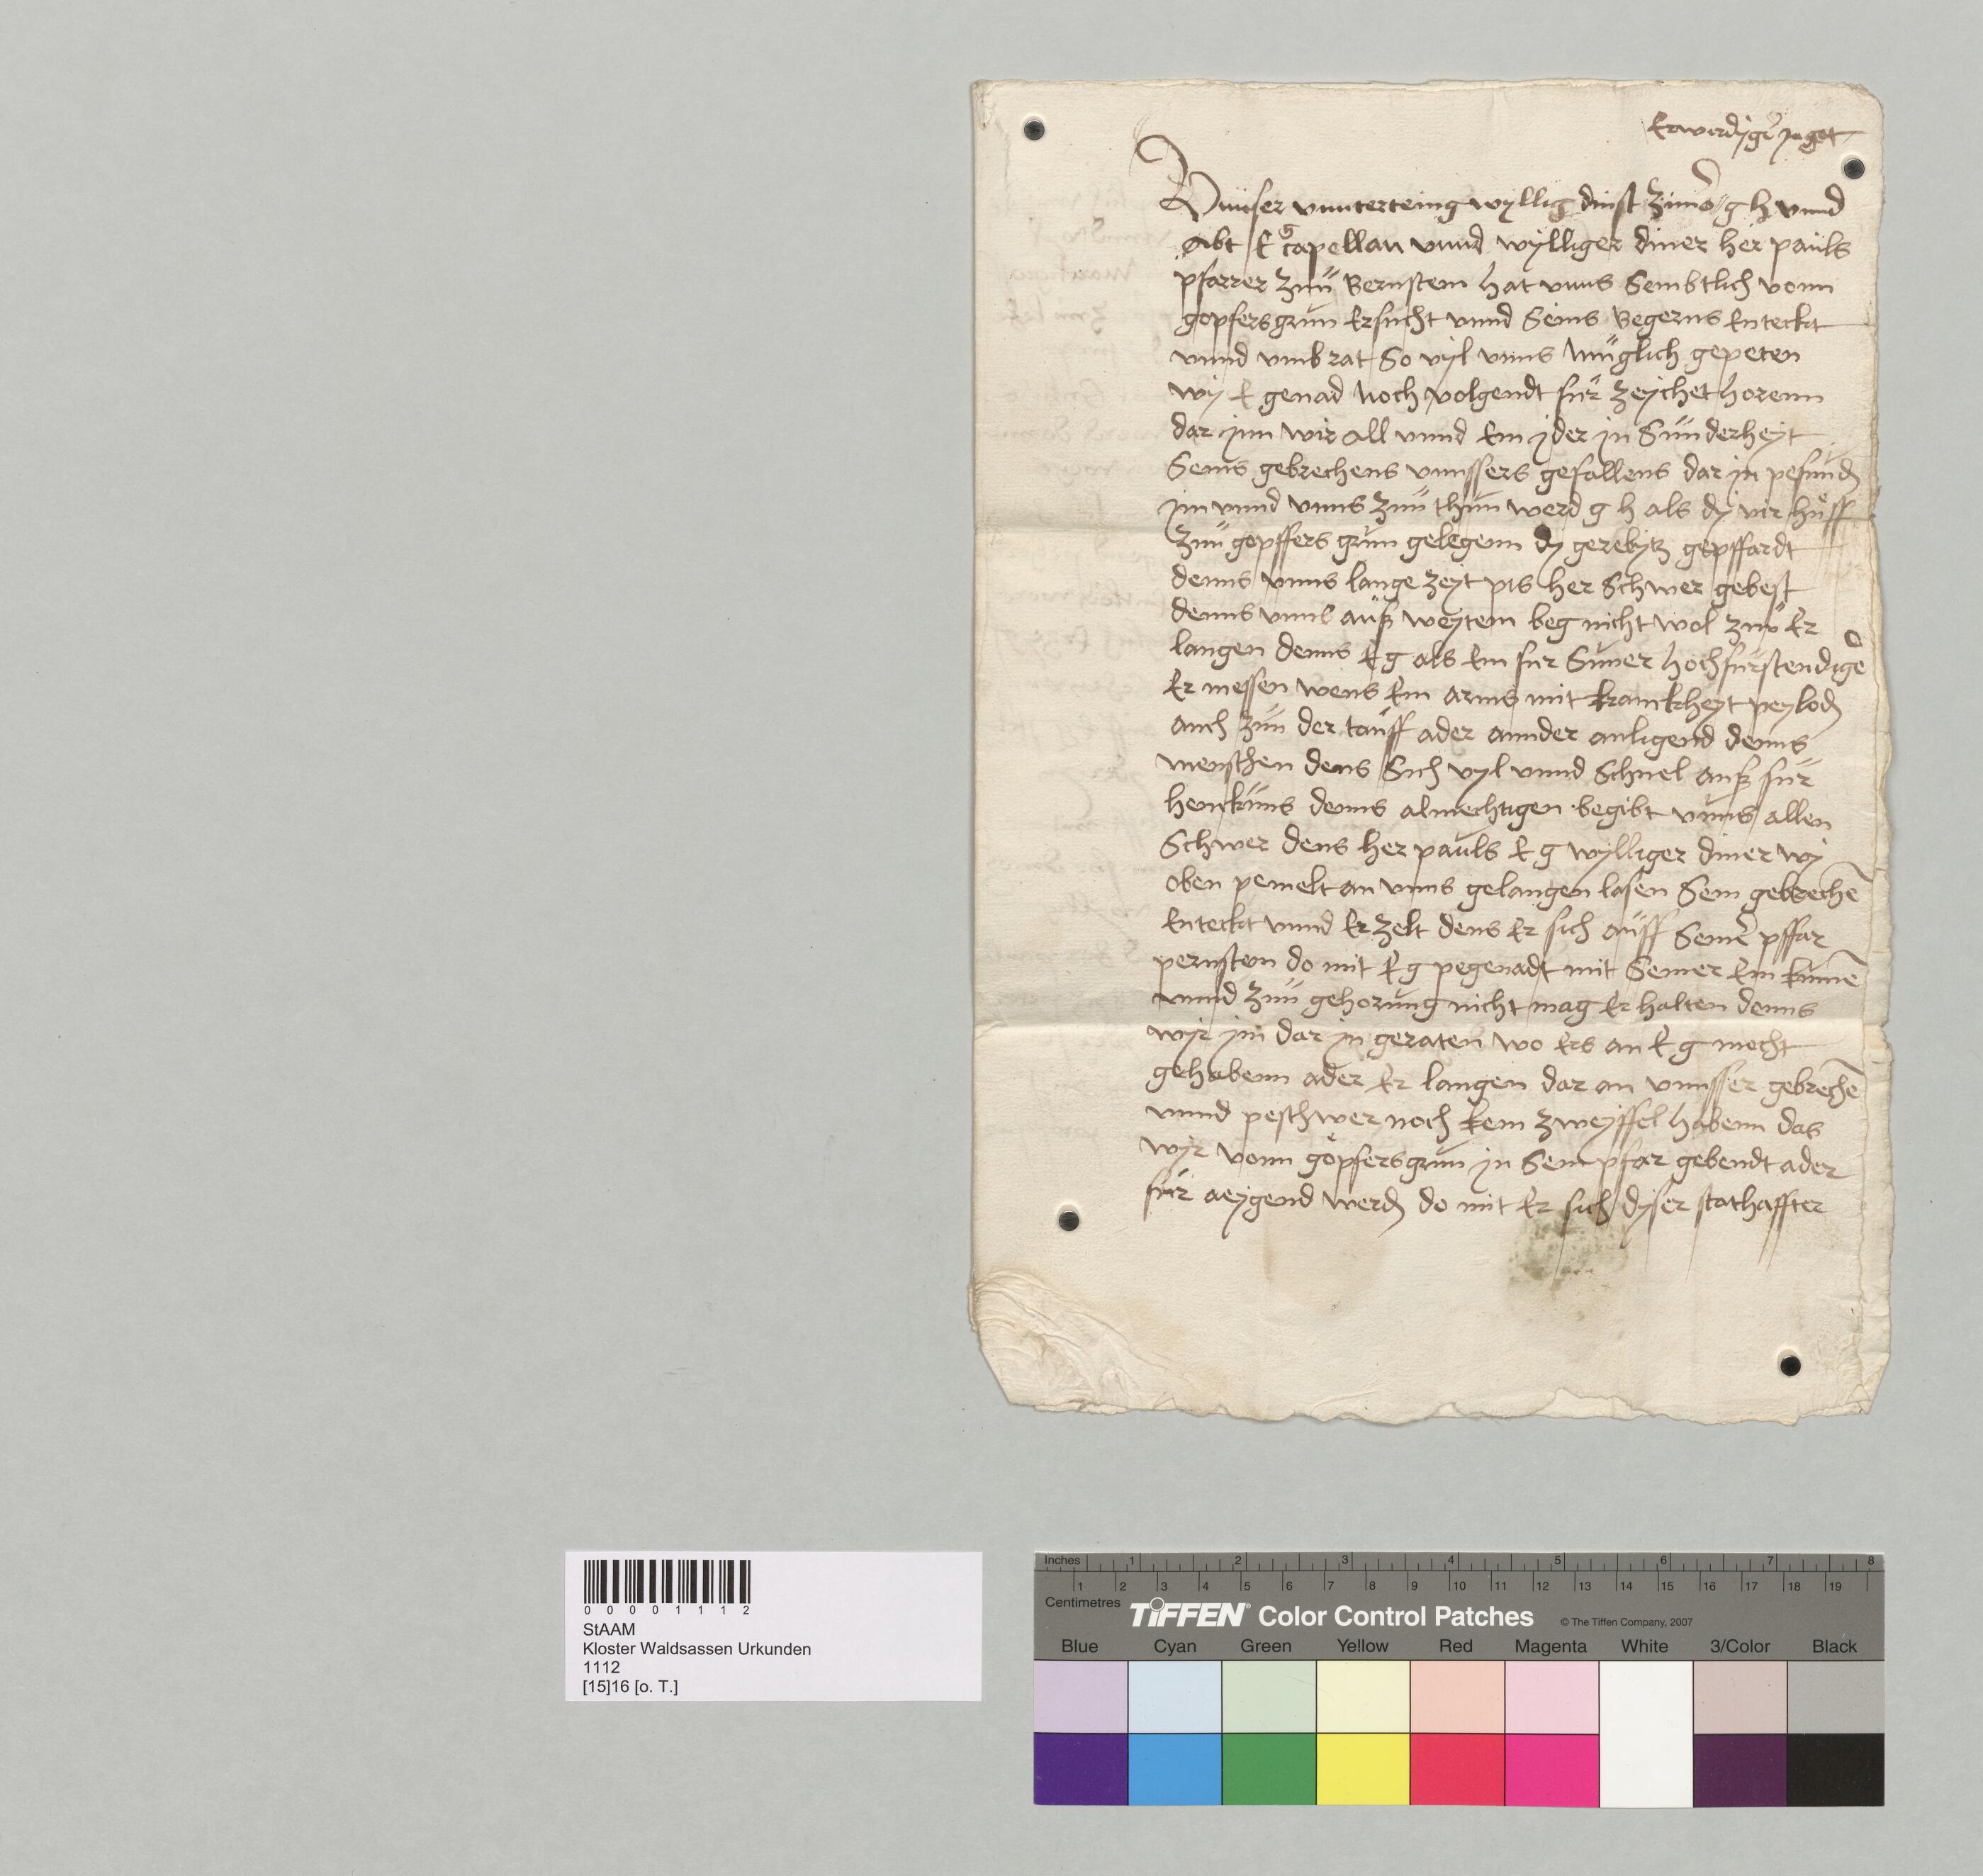 Erwirdiger in got
Vnnser vnnterteing wyllig dinst zuuor g h vnnd
abt E g capellan vnnd wylliger diner her paüls
pfarrer zuü Bernstein hat vnns Sembtlich vonn
gopfersgrün Ersucht vnnd Seins Begerns Enteckt
vnnd vmb rat So vyl vnns müglich gepeten
wy E genad noch volgendt für zeychet horenn
dar jnn wir all vnnd Ein jder jn Sünderheyt
Seins gebrechens vnnssers gefallens dar jn pesünd
jm vnnd vnns zuü thün werd g h als dy vir hüff
zuü gopffers grün gelegenn dy gepffardt
denns vnns lange zeyt pis her Schwer gebest
denns vnns aüß weytem beg nicht wol zuü Er
langen denns E g als Ein für hochfürstendiger
Er messen wens Ein arms mit kranckheyt
auch zuü der taüff ader annder anligend denns
menschen dens Sich vyl vnnd Schnel auß für
henküns denns almechtigen begibt vnns allen
Schwer dens her paüls E g wylliger diner wy
oben pemelt an vnns gelangen lasen Sein gebreche
Enteckt vnnd Er zelt dens Er sich aüff Seiner pffar
pernstein do mit E g pegenadt mit Seiner Ein küme
vnnd zuü gehorüng nicht mag Er halten denns
wyr jm dar jn geraten wo Ers an E g mocht
gehabenn ader Er langen dar an vnnsser gebreche
vnnd peschwer noch kein zweyffel habenn das
wyr vonn göpfersgrün jn Sein pfar gebendt ader
für aeygend werd do mit Er sich dyser stathaffter
0 0 0 0 1 1 1 2
StAAM
Kloster Waldsassen Urkunden
1112
[15]16 [o. T.]
Inches 1 2 3 4 5 6 7 8
1 2 3 4 5 6 7 8 9 10 11 12 13 14 15 16 17 18 19
Centimetres
TIFFEN® Color Control Patches © The Tiffen Company, 2007
Blue Cyan Green Yellow Red Magenta White 3/Color Black